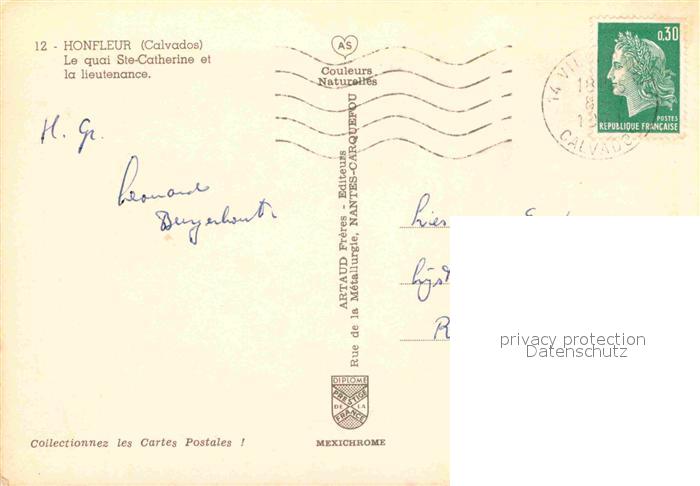 12 - HONFLEUR (Calvados)
Le quai Ste-Catherine et
la lieutenance.
AS
Couleurs
Naturelles
0,30
POSTES
REPUBLIQUE FRANÇAISE
14 VI
18
CALVADOS
H. Gr.
Leonard
ARTAUD Frères - Editeurs
Rue de la Métallurgie, NANTES-CARQUEFOU
R
privacy protection
Datenschutz
DIPLOME
PRESTIGE
DE LA
FRANCE
Collectionnez les Cartes Postales !
MEXICHROME